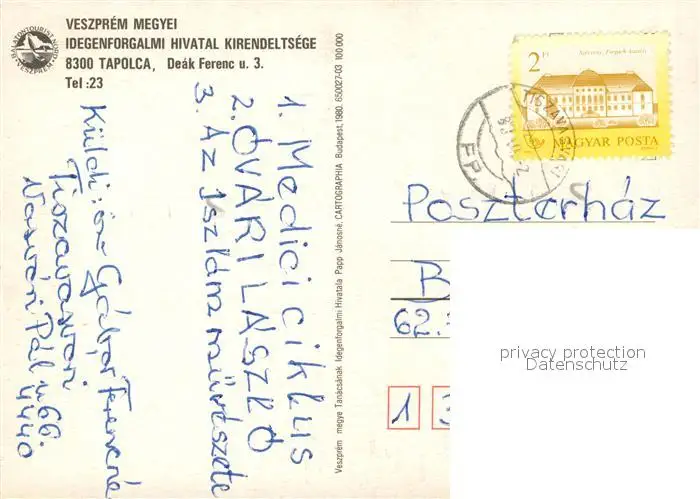 VESZPRÉM MEGYEI
IDEGENFORGALMI HIVATAL KIRENDELTSÉGE
8300 TAPOLCA, Deák Ferenc u. 3.
Tel :23
BALATONTOURIST NORD
VESZPRÉM
1. Medici ciklus
2. ÓVÁRI LÁSZLÓ
3. Az Iszlám művészete
Küldi: özv Gábor Ferencné
Tiszavasvári
Vasvári Pál u 66.
4440
Veszprém megye Tanácsának Idegenforgalmi Hivatala Papp Jánosné, CARTOGRAPHIA Budapest, 1980. 650027-03 100 000
2 Ft
MAGYAR POSTA
TISZAVASVÁRI
Poszterház
B
62.
1 3
privacy protection
Datenschutz